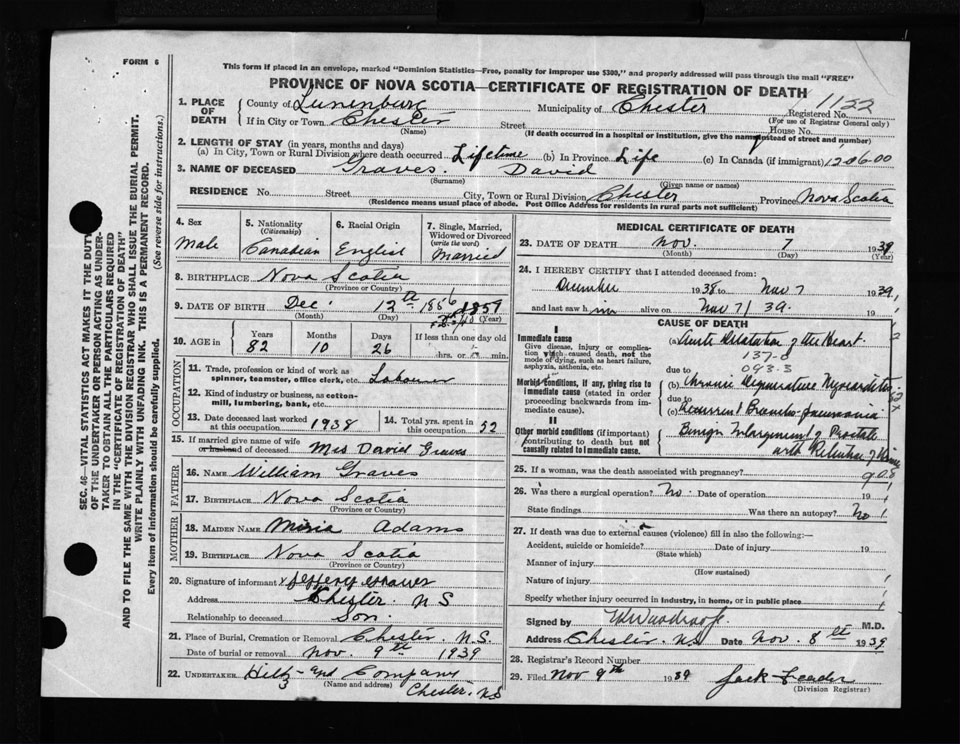 FORM 6
This form if placed in an envelope, marked "Dominion Statistics—Free, penalty for improper use $300," and properly addressed will pass through the mail "FREE"
PROVINCE OF NOVA SCOTIA—CERTIFICATE OF REGISTRATION OF DEATH
1122
1. PLACE OF DEATH
County of Lunenburg Municipality of Chester Registered No.
(For use of Registrar General only)
If in City or Town Chester Street House No.
(Name) (If death occurred in a hospital or institution, give the name instead of street and number)
2. LENGTH OF STAY (in years, months and days)
(a) In City, Town or Rural Division where death occurred Lifetime (b) In Province Life (c) In Canada (if immigrant) 120600
3. NAME OF DECEASED Graves. David
(Surname) (Given name or names)
RESIDENCE No. Street City, Town or Rural Division Chester Province Nova Scotia
(Residence means usual place of abode. Post Office Address for residents in rural parts not sufficient)
SEC. 46—VITAL STATISTICS ACT MAKES IT THE DUTY
OF THE UNDERTAKER OR PERSON ACTING AS UNDER-
TAKER TO OBTAIN ALL THE PARTICULARS REQUIRED
IN THE "CERTIFICATE OF REGISTRATION OF DEATH"
AND TO FILE THE SAME WITH THE DIVISION REGISTRAR WHO SHALL ISSUE THE BURIAL PERMIT.
WRITE PLAINLY WITH UNFADING INK. THIS IS A PERMANENT RECORD.
Every item of information should be carefully supplied. (See reverse side for instructions.)
4. Sex Male
5. Nationality (Citizenship) Canadian
6. Racial Origin English
7. Single, Married, Widowed or Divorced (write the word) Married
8. BIRTHPLACE Nova Scotia
(Province or Country)
9. DATE OF BIRTH Dec. 12th 1856 1857
(Month) (Day) (Year)
10. AGE in Years 82 Months 10 Days 26 If less than one day old
hrs. or min.
OCCUPATION
11. Trade, profession or kind of work as
spinner, teamster, office clerk, etc. Labourer
12. Kind of industry or business, as cotton-
mill, lumbering, bank, etc.
13. Date deceased last worked
at this occupation 1938
14. Total yrs. spent
in this occupation 52
15. If married give name of wife
or husband of deceased Mrs David Graves
FATHER
16. NAME William Graves
17. BIRTHPLACE Nova Scotia
(Province or Country)
MOTHER
18. MAIDEN NAME Adams
19. BIRTHPLACE Nova Scotia
(Province or Country)
20. Signature of informant x Jeffery Graves
Address Chester. N S
Relationship to deceased Son
21. Place of Burial, Cremation or Removal Chester. N.S.
Date of burial or removal Nov. 9th 1939
22. UNDERTAKER Hiltz and Company
(Name and address) Chester. N S
MEDICAL CERTIFICATE OF DEATH
23. DATE OF DEATH Nov. 7 1939
(Month) (Day) (Year)
24. I HEREBY CERTIFY that I attended deceased from:
December 1938 to Nov 7 1939
and last saw him alive on Nov 7/39. 19
CAUSE OF DEATH
I
Immediate cause
Give disease, injury or complica-
tion which caused death, not the
mode of dying, such as heart failure,
asphyxia, asthenia, etc.
(a) Acute Dilatation of the Heart
137-0
due to 093.3
Morbid conditions, if any, giving rise to
immediate cause (stated in order
proceeding backwards from
immediate cause).
(b) Chronic Degenerative Myocarditis
due to
(c) Recurrent Broncho-pneumonia
II
Other morbid conditions (if important)
contributing to death but not
causally related to immediate cause.
Benign Enlargement of Prostate
with Retention of Urine
25. If a woman, was the death associated with pregnancy?
26. Was there a surgical operation? No. Date of operation 19
State findings Was there an autopsy? No
27. If death was due to external causes (violence) fill in also the following:—
Accident, suicide or homicide? Date of injury 19
(State which)
Manner of injury
(How sustained)
Nature of injury
Specify whether injury occurred in industry, in home, or in public place
Signed by M.D.
Address Chester. N.S. Date Nov. 8th 1939
28. Registrar's Record Number
29. Filed Nov 9th 1939 Jack Leader
(Division Registrar)